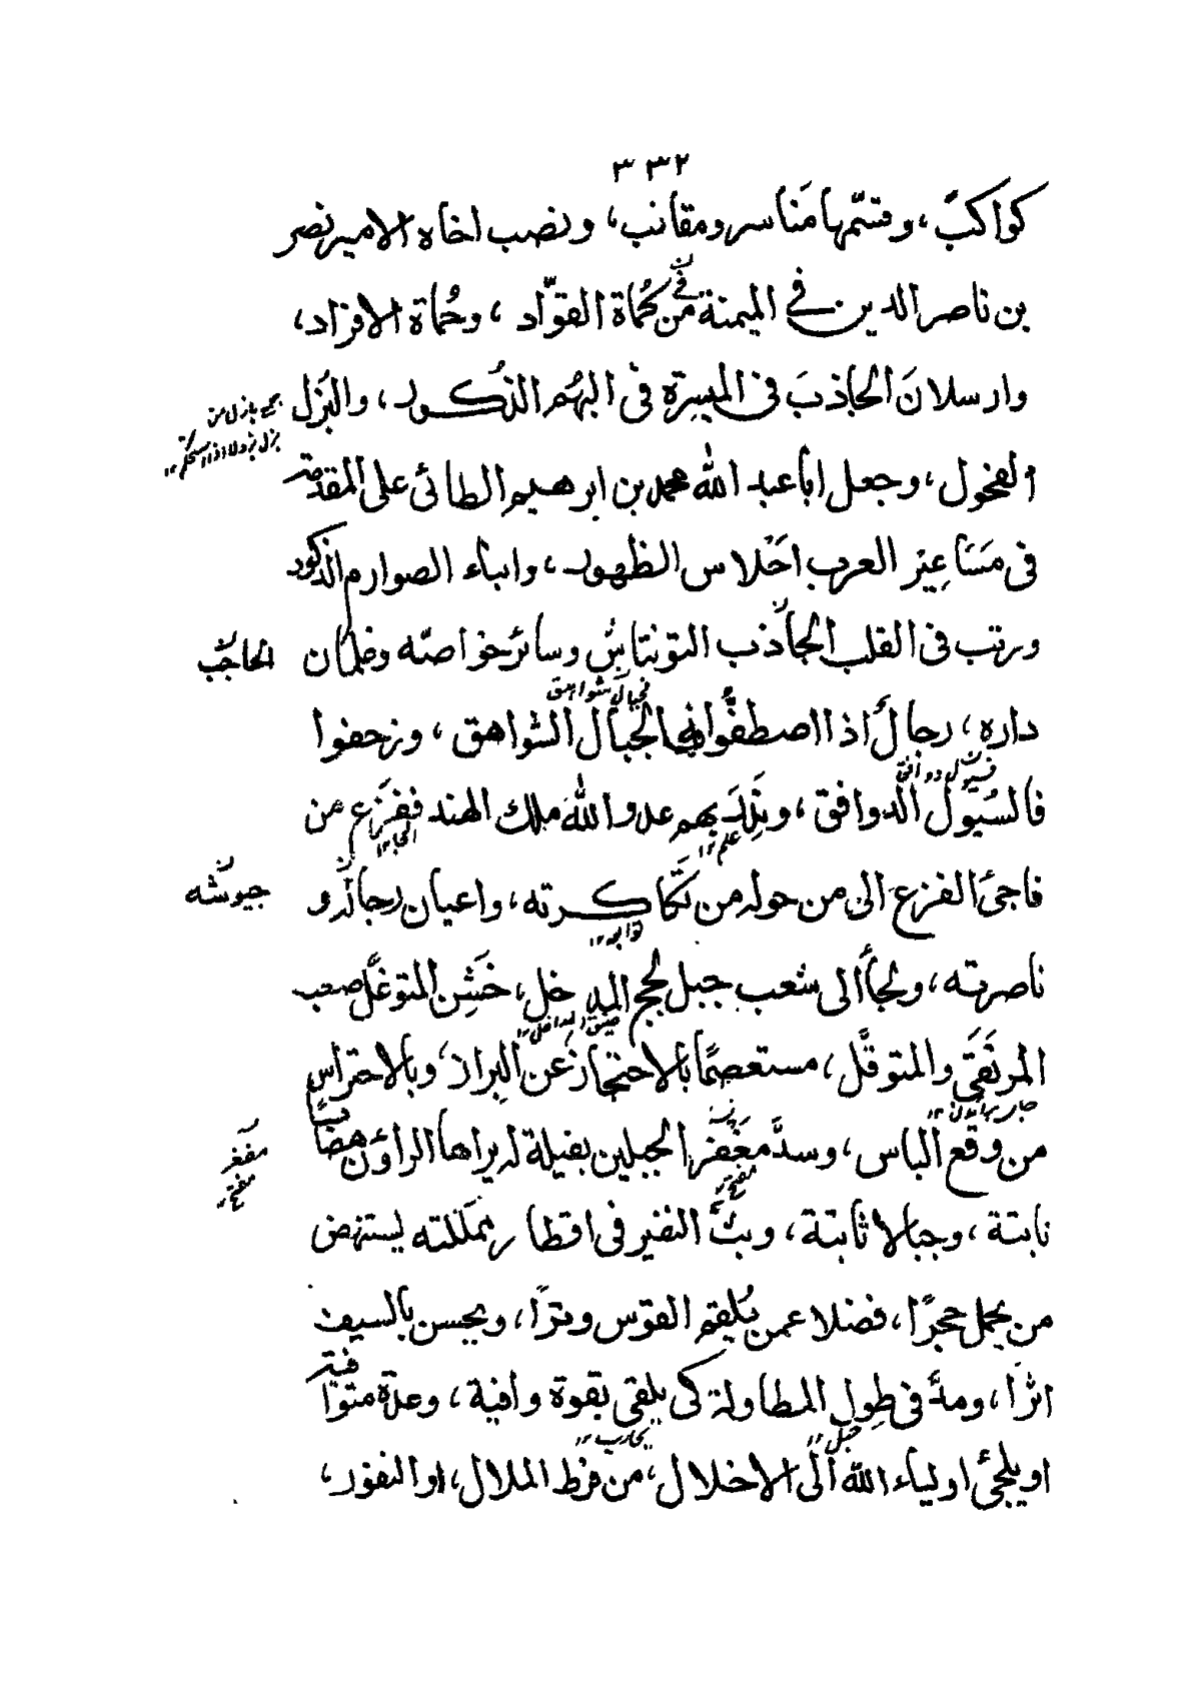 ٣٣٢
كواكبَ، وقسّمها مَناسر ومقانب، ونصب اخاه الامير نصر
بن ناصر الدين في الميمنة من كُماة القوّاد، وحُماة الافراد،
وارسلانَ الجاذبَ فى الميسرة فى البُهُم الذُكور، والبُزل
جمع بازل من
الفحول، وجعل ابا عبد الله محمد بن ابرهيم الطائى على المقدمة
فى مَسَاعِيْر العرب احَلاس الظهور، وابناء الصوارم الذكور
ورتب فى القلب الجاذب التونتاش وسائر خواصّه وغلمان
الحاجب
داره، رجالٌ اذا اصطفُّوا فالجبال الشواهق، وزحفوا
فجبال شواهق
فالسُيول الدوافق، ونَذِرَ بهم عدو الله ملك الهند ففَزَع من
فسيول دوافق
علم ١٢
فاجئ الفزع الى من حوله من تَكاكرته، واعيان رجاله و
جيوشه
توابعه ١٢
ناصرته، ولجأ الى شعب جبل لحج المدخل، خَشِن المتوغَّل صعب
ضيق المداخل ١٢
المرتَقَى والمتوقَّل، مستعصمًا بالاحتجاز عن البِراز، وبالاحتراس
من وقع الباس، وسدَّ مَغفَر الجبلين بفيلة له يراها الراؤن هضابًا
مفغر
مفتح ١٢
نابتة، وجبالا ثابتة، وبثَّ النفير فى اقطار مملكته يستنهض
من يحمل حجرًا، فضلا عمن يُلقم القوس وترًا، ويحسن بالسيف
اثرًا، ومدَّ فى طِوَل المطاولة كى يلقى بقوة وافية، وعدّة متوافية
حبل ١٢
يحارب ١٢
او يلجئ اولياء الله الى الاخلال، من فرط الملال، او النفور،